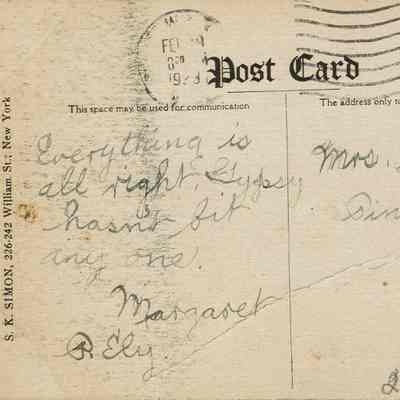 FE
1923
Post Card
This space may be used for communication
The address only to
Everything is
all right. Gypsy
hasnt bit
any one.
Margaret
R Ely.
Mrs.
S. K. SIMON, 226-242 William St., New York